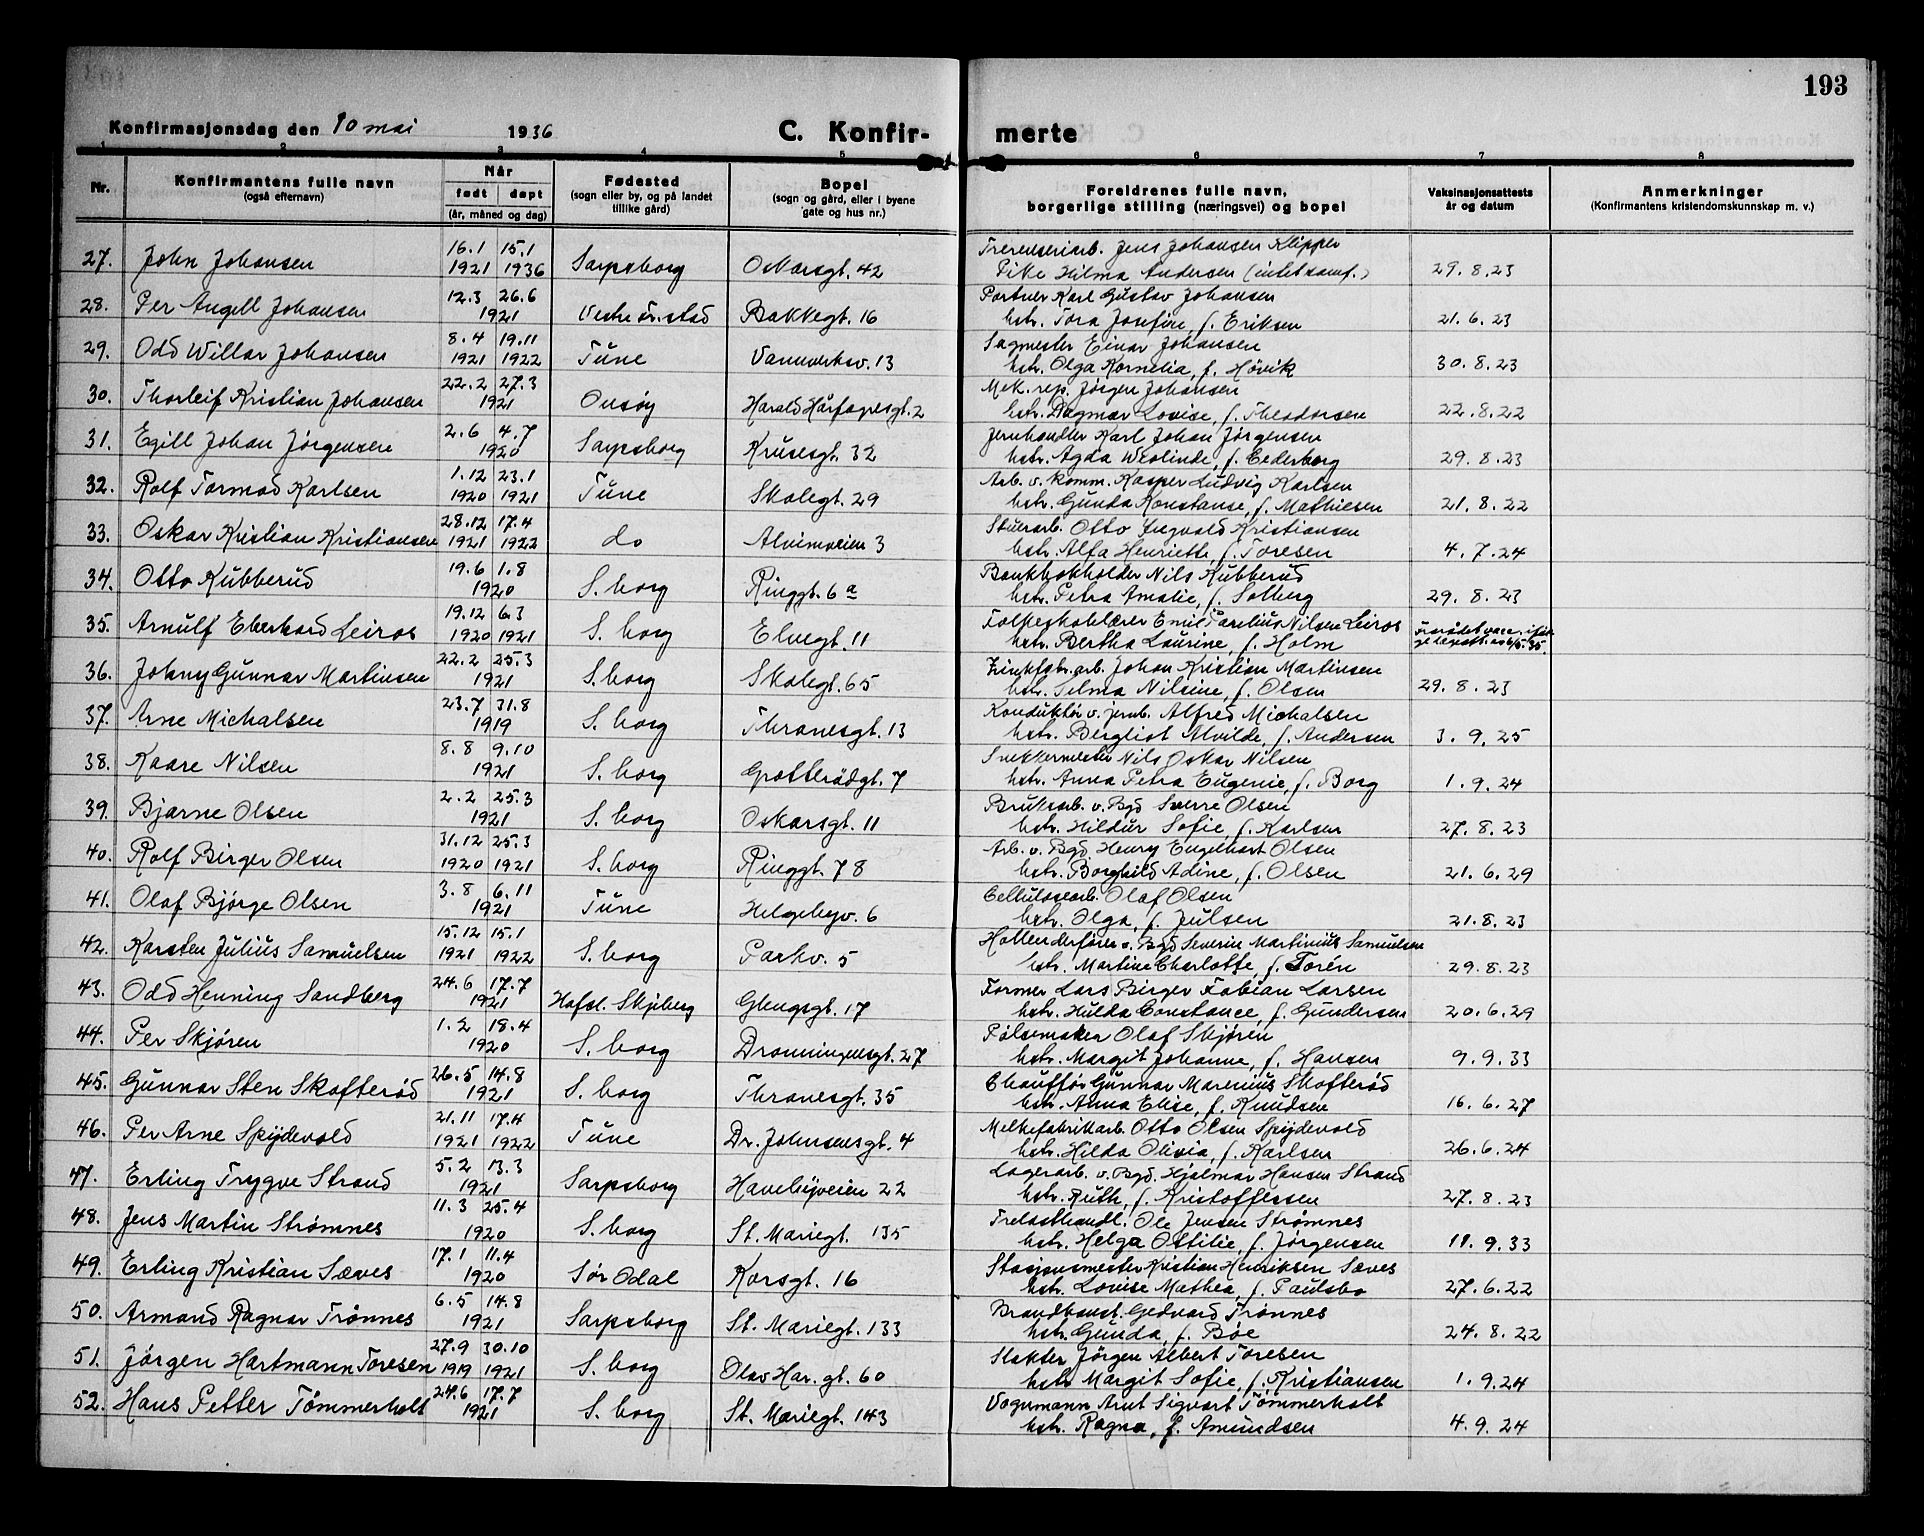 193
Konfirmasjonsdag den 10 mai 1936 C. Konfir- merte
1 2 3 4 5 6 7 8
Nr. Konfirmantens fulle navn (også efternavn) Når født døpt (år, måned og dag) Fødested (sogn eller by, og på landet tillike gård) Bopel (sogn og gård, eller i byene gate og hus nr.) Foreldrenes fulle navn, borgerlige stilling (næringsvei) og bopel Vaksinasjonsattests år og datum Anmerkninger (Konfirmantens kristendomskunnskap m. v.)
27. John Johansen 16.1 1921 15.1 1936 Sarpsborg Oskarsgt. 42 Jens Johansen Klipper
Pike Hilma Andersen (intet samf.) 29.8.23
28. Per Angell Johansen 12.3 26.6 1921 Vestre Fr.stad Bakkegt. 16 Portner Karl Gustav Johansen
hstr. Tora Josefine, f. Eriksen 21.6.23
29. Odd Willar Johansen 8.4 1921 19.11 1922 Tune Vannverksv. 13 Sagmester Einar Johansen
hstr. Olga Kornelia, f. Høvik 30.8.23
30. Thorleif Kristian Johansen 22.2 27.3 1921 Onsøy Harald Hårfagresgt. 2 Mek. rep. Jørgen Johansen
hstr. Dagmar Lovise, f. Theodorsen 22.8.22
31. Egill Johan Jørgensen 2.6 4.7 1920 Sarpsborg Krusesgt. 32 Jernhandler Karl Johan Jørgensen
hstr. Agda Weolinde, f. Cederborg 29.8.23
32. Rolf Tormod Karlsen 1.12 1920 23.1 1921 Tune Skolegt. 29 Arb. v. komm. Kasper Ludvig Karlsen
hstr. Gunda Konstanse, f. Mathiesen 21.8.22
33. Oskar Kristian Kristiansen 28.12 1921 17.4 1922 do Alvimveien 3 Stuerarb. Otto Ingvald Kristiansen
hstr. Alfa Henriette, f. Toresen 4.7.24
34. Otto Kubberud 19.6 1.8 1920 S.borg Ringgt. 6a Bankbokholder Nils Kubberud
hstr. Petra Amalie, f. Solberg 29.8.23
35. Arnulf Eberhard Leiros 19.12 1920 6.3 1921 S.borg Elvegt. 11 Folkeskolelærer Emil Parelius Nilsen Leiros
hstr. Bertha Laurine, f. Holm
36. Johny Gunnar Martinsen 22.2 25.3 1921 S.borg Skolegt. 65 Zinkfabr.arb. Johan Kristian Martinsen
hstr. Selma Nilsine, f. Olsen 29.8.23
37. Arne Michalsen 23.7 31.8 1919 S.borg Thranesgt. 13 Konduktör v. jernb. Alfred Michalsen
hstr. Bergliot Alvilde, f. Andersen 3.9.25
38. Kaare Nilsen 8.8 9.10 1921 S.borg Grotterødgt. 7 Snekkermester Nils Oskar Nilsen
hstr. Anna Petra Eugenie, f. Borg 1.9.24
39. Bjarne Olsen 2.2 25.3 1921 S.borg Oskarsgt. 11 Bruksarb. v. Bgd Sverre Olsen
hstr. Hildur Sofie, f. Karlsen 27.8.23
40. Rolf Birger Olsen 31.12 1920 25.3 1921 S.borg Ringgt. 78 Arb. v. Bgd Henry Engelhart Olsen
hstr. Borghild Adine, f. Olsen 21.6.29
41. Olaf Bjørge Olsen 3.8 6.11 1921 Tune Helgebyv. 6 Cellulosearb. Olaf Olsen
hstr. Olga, f. Julsen 21.8.23
42. Karsten Julius Samuelsen 15.12 1921 15.1 1922 S.borg Parkv. 5 Hollenderfører v. Bgd Severin Martinius Samuelsen
hstr. Martine Charlotte, f. Torén 29.8.23
43. Odd Henning Sandberg 24.6 17.7 1921 Hafsl. Skjeberg Glengsgt. 17 Former Lars Birger Fabian Larsen
hstr. Hulda Constance, f. Gundersen 20.6.29
44. Per Skjøren 1.2 18.4 1920 S.borg Dronningensgt. 27 Pølsemaker Olaf Skjøren
hstr. Margit Johanne, f. Hansen 9.9.33
45. Gunnar Sten Skofterød 26.5 14.8 1921 S.borg Thranesgt. 35 Chauffør Gunnar Marenius Skofterød
hstr. Anna Elise, f. Knudsen 16.6.27
46. Per Arne Spydevold 21.11 1921 17.4 1922 Tune Dr. Johnsensgt. 4 Melkefabrikarb. Otto Olsen Spydevold
hstr. Hilda Olivia, f. Karlsen 26.6.24
47. Erling Trygve Strand 5.2 13.3 1921 Sarpsborg Hannebyveien 22 Lagerarb. v. Bgd. Hjalmar Hansen Strand
hstr. Ruth, f. Kristoffersen 27.8.23
48. Jens Martin Strømnes 11.3 25.4 1920 S.borg St. Mariegt. 135 Trelasthandl. Ole Jensen Strømnes
hstr. Helga Ottilie, f. Jørgensen 11.9.33
49. Erling Kristian Sæves 17.1 11.4 1920 Sør Odal Korsgt. 16 Stasjonsmester Kristian Henriksen Sæves
hstr. Lovise Mathea, f. Paulsbo 27.6.22
50. Armand Ragnar Trønnes 6.5 14.8 1921 Sarpsborg St. Mariegt. 133 Brandkonst. Gedvard Trønnes
hstr. Gunda, f. Bøe 24.8.22
51. Jørgen Hartmann Toresen 27.9 1919 30.10 1921 S.borg Olav Har. gt. 60 Slakter Jörgen Albert Toresen
hstr. Margit Sofie, f. Kristiansen 1.9.24
52. Hans Petter Tømmerholt 24.6 17.7 1921 S.borg St. Mariegt. 143 Vognmann Arnt Sigvart Tømmerholt
hstr. Ragna, f. Amundsen 4.9.24